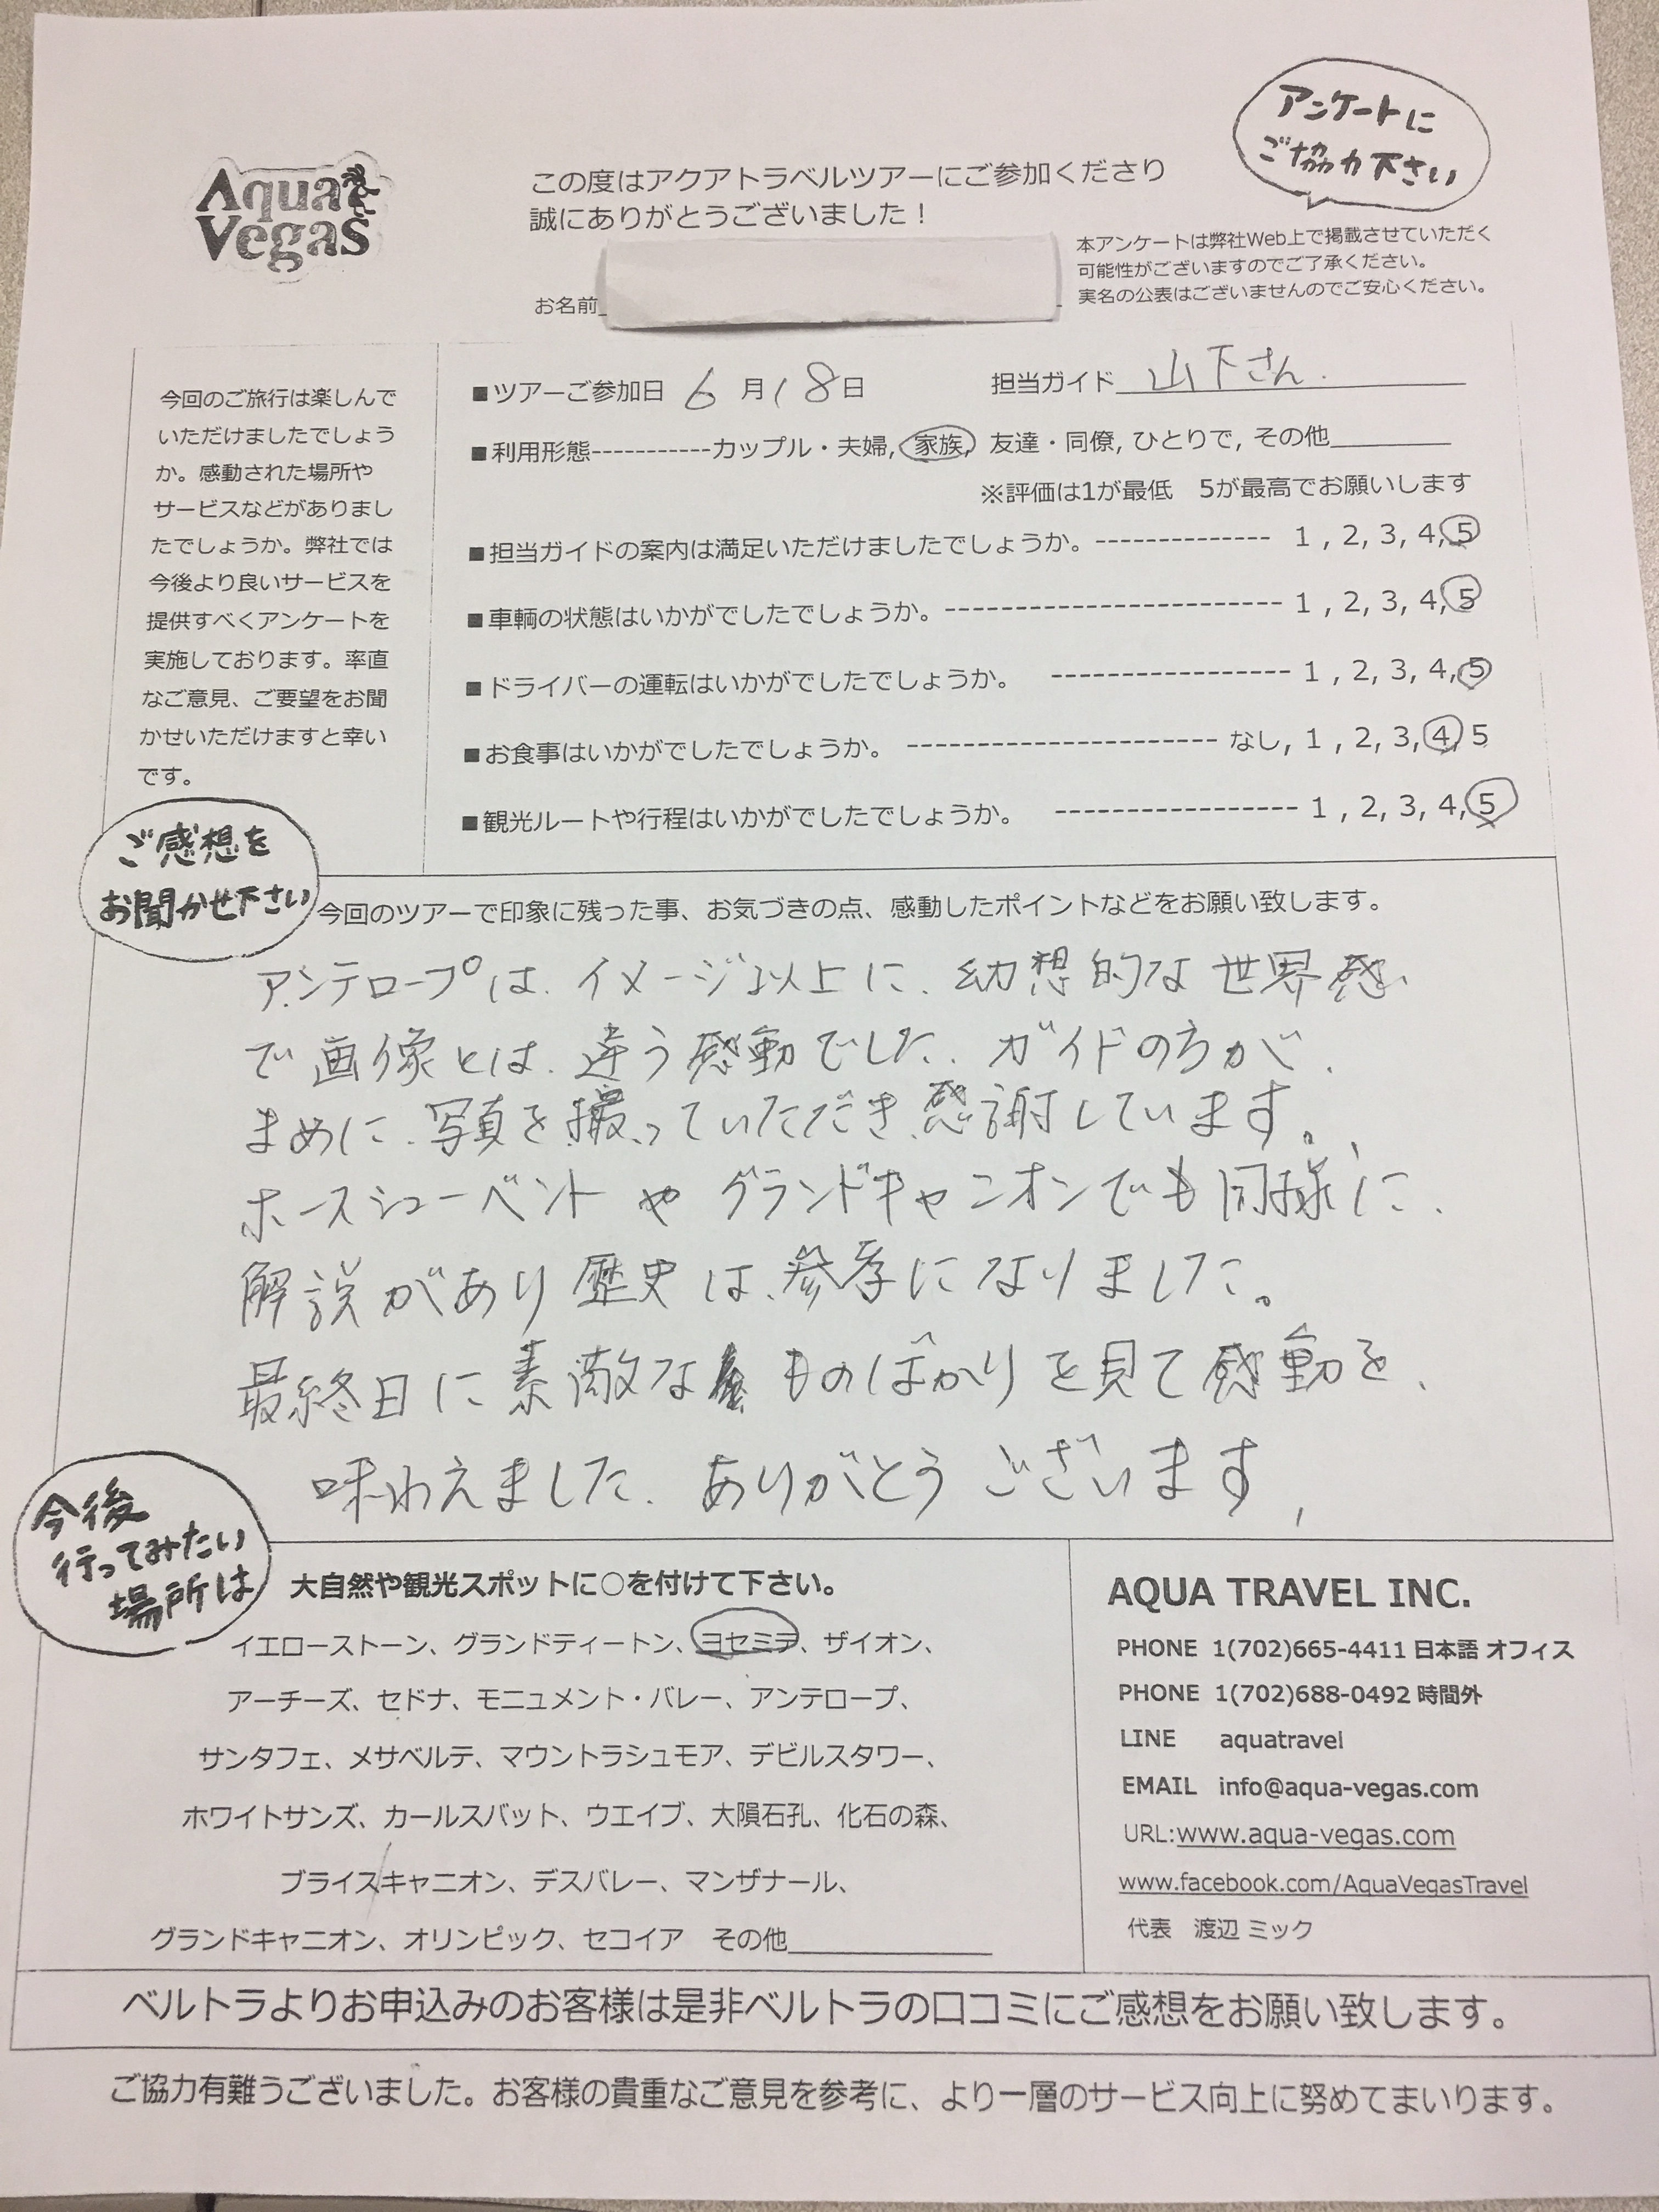 アンケートに
ご協力下さい
Aqua
Vegas
この度はアクアトラベルツアーにご参加くださり
誠にありがとうございました！
本アンケートは弊社Web上で掲載させていただく
可能性がございますのでご了承ください。
実名の公表はございませんのでご安心ください。
お名前
今回のご旅行は楽しんで
いただけましたでしょう
か。感動された場所や
サービスなどがありまし
たでしょうか。弊社では
今後より良いサービスを
提供すべくアンケートを
実施しております。率直
なご意見、ご要望をお聞
かせいただけますと幸い
です。
■ツアーご参加日 6 月 18 日 担当ガイド 山下さん.
■利用形態-----------カップル・夫婦, 家族, 友達・同僚, ひとりで, その他
※評価は1が最低 5が最高でお願いします
■担当ガイドの案内は満足いただけましたでしょうか。-------------- 1 , 2, 3, 4, 5
■車輌の状態はいかがでしたでしょうか。--------------------------- 1 , 2, 3, 4, 5
■ドライバーの運転はいかがでしたでしょうか。 ------------------- 1 , 2, 3, 4, 5
■お食事はいかがでしたでしょうか。 ------------------------- なし, 1 , 2, 3, 4, 5
■観光ルートや行程はいかがでしたでしょうか。 ------------------- 1 , 2, 3, 4, 5
ご感想を
お聞かせ下さい
今回のツアーで印象に残った事、お気づきの点、感動したポイントなどをお願い致します。
アンテロープは、イメージ以上に、幻想的な世界感
で画像とは、違う感動でした、ガイドの方が、
まめに、写真を撮っていただき、感謝しています。
ホースシューベントやグランドキャニオンでも同様に、
解説があり歴史は、参考になりました。
最終日に素敵な ものばかりを見て感動を、
味わえました、ありがとうございます、
今後
行ってみたい
場所は
大自然や観光スポットに○を付けて下さい。
イエローストーン、グランドティートン、ヨセミテ、ザイオン、
アーチーズ、セドナ、モニュメント・バレー、アンテロープ、
サンタフェ、メサベルテ、マウントラシュモア、デビルスタワー、
ホワイトサンズ、カールスバット、ウエイブ、大隕石孔、化石の森、
ブライスキャニオン、デスバレー、マンザナール、
グランドキャニオン、オリンピック、セコイア その他
AQUA TRAVEL INC.
PHONE 1(702)665-4411 日本語 オフィス
PHONE 1(702)688-0492 時間外
LINE aquatravel
EMAIL info@aqua-vegas.com
URL:www.aqua-vegas.com
www.facebook.com/AquaVegasTravel
代表 渡辺 ミック
ベルトラよりお申込みのお客様は是非ベルトラの口コミにご感想をお願い致します。
ご協力有難うございました。お客様の貴重なご意見を参考に、より一層のサービス向上に努めてまいります。